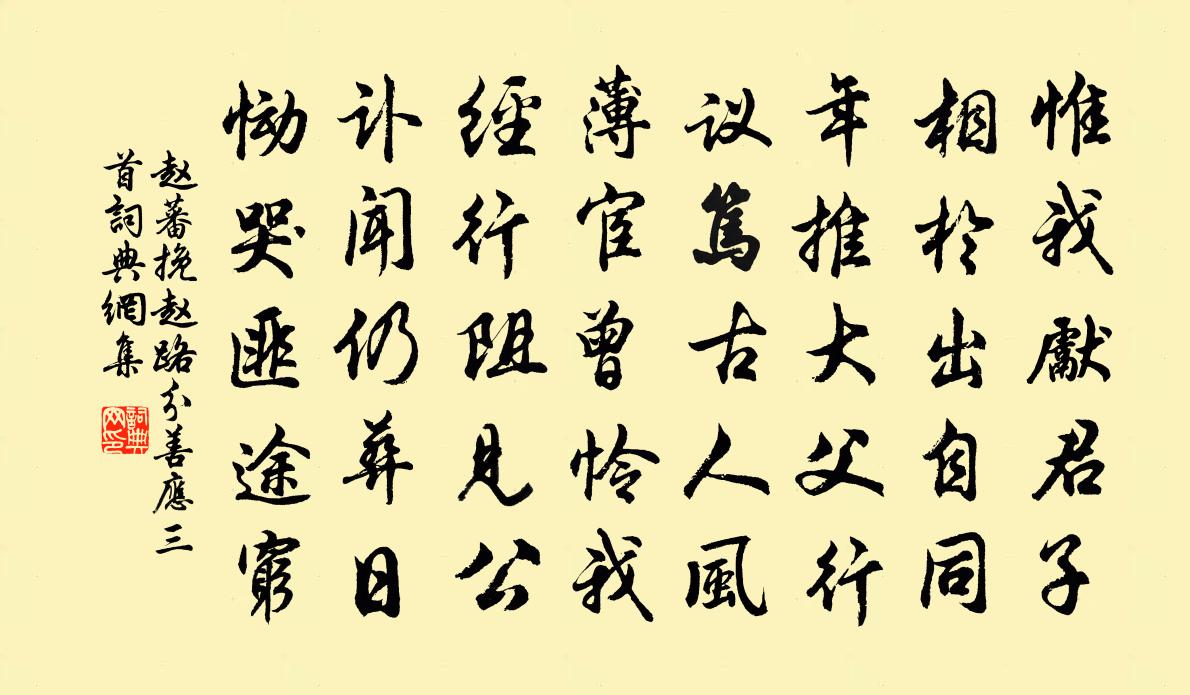 惟我獻君子
相於出自同
年推大父行
议篤古人風
薄宦曾怜我
經行阻見公
讣闻仍葬日
恸哭匪途窮
赵蕃挽赵路分善應三
首詞典網集
詞典
网印